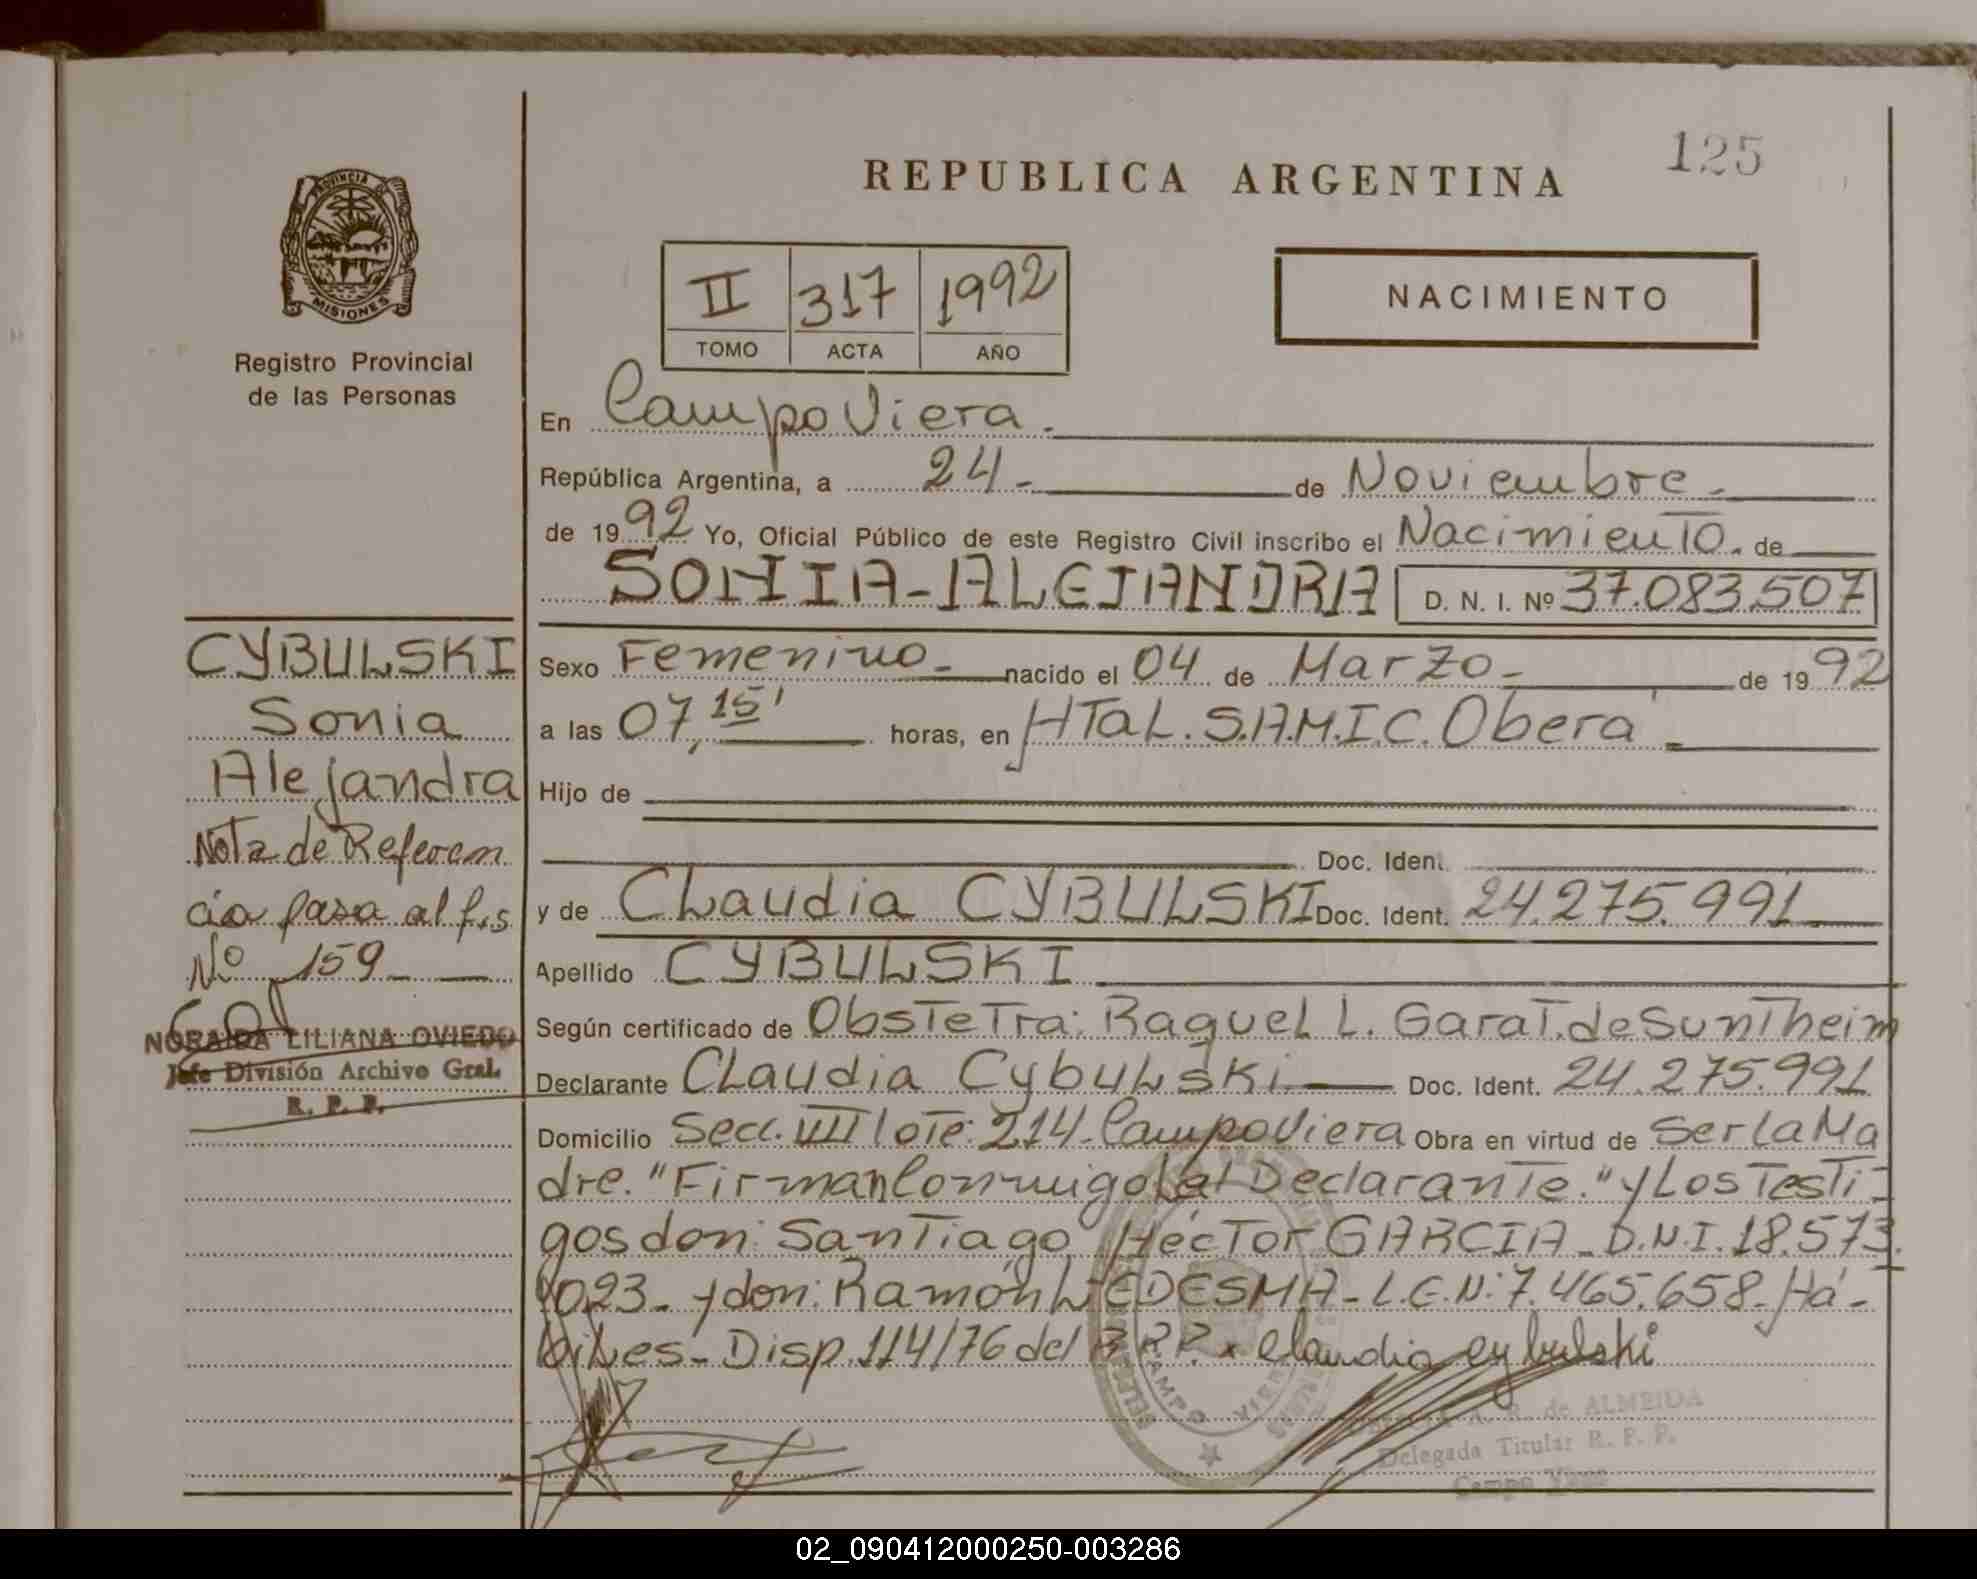 125
REPUBLICA ARGENTINA
PROVINCIA DE
MISIONES
Registro Provincial
de las Personas
II 317 1992
TOMO ACTA AÑO
NACIMIENTO
En Campo Viera.
República Argentina, a 24 - de Noviembre.
de 1992 Yo, Oficial Público de este Registro Civil inscribo el Nacimiento. de
SONIA-ALEJANDRA D. N. I. Nº 37.083.507
Sexo Femenino - nacido el 04 de Marzo - de 1992
a las 07,15' horas, en HTal. S.A.M.I.C. Oberá
Hijo de
Doc. Ident.
y de Claudia CYBULSKI Doc. Ident. 24.275.991
Apellido CYBULSKI
Según certificado de Obstetra: Raquel L. Garat. de Suntheim
Declarante Claudia Cybulski Doc. Ident. 24.275.991
Domicilio Secc. VIII lote: 214. Campo Viera Obra en virtud de Ser la Ma
dre. "Firman Conmigo La Declarante." y Los Testi-
gos don: Santiago Héctor GARCIA - D.N.I. 18.573.
023 - y don: Ramón LEDESMA - L.E.N: 7.465.658 - Há-
biles - Disp. 114/76 del R.P.P. x Claudia cybulski
CYBULSKI
Sonia
Alejandra
Nota de Referen
cia pasa al fis
Nº 159
NORAIDA LILIANA OVIEDO
Jefe División Archivo Gral.
R. P. P.
CAMPO VIERA
A. R. de ALMEIDA
Delegada Titular R. P. P.
Campo Viera
02_090412000250-003286